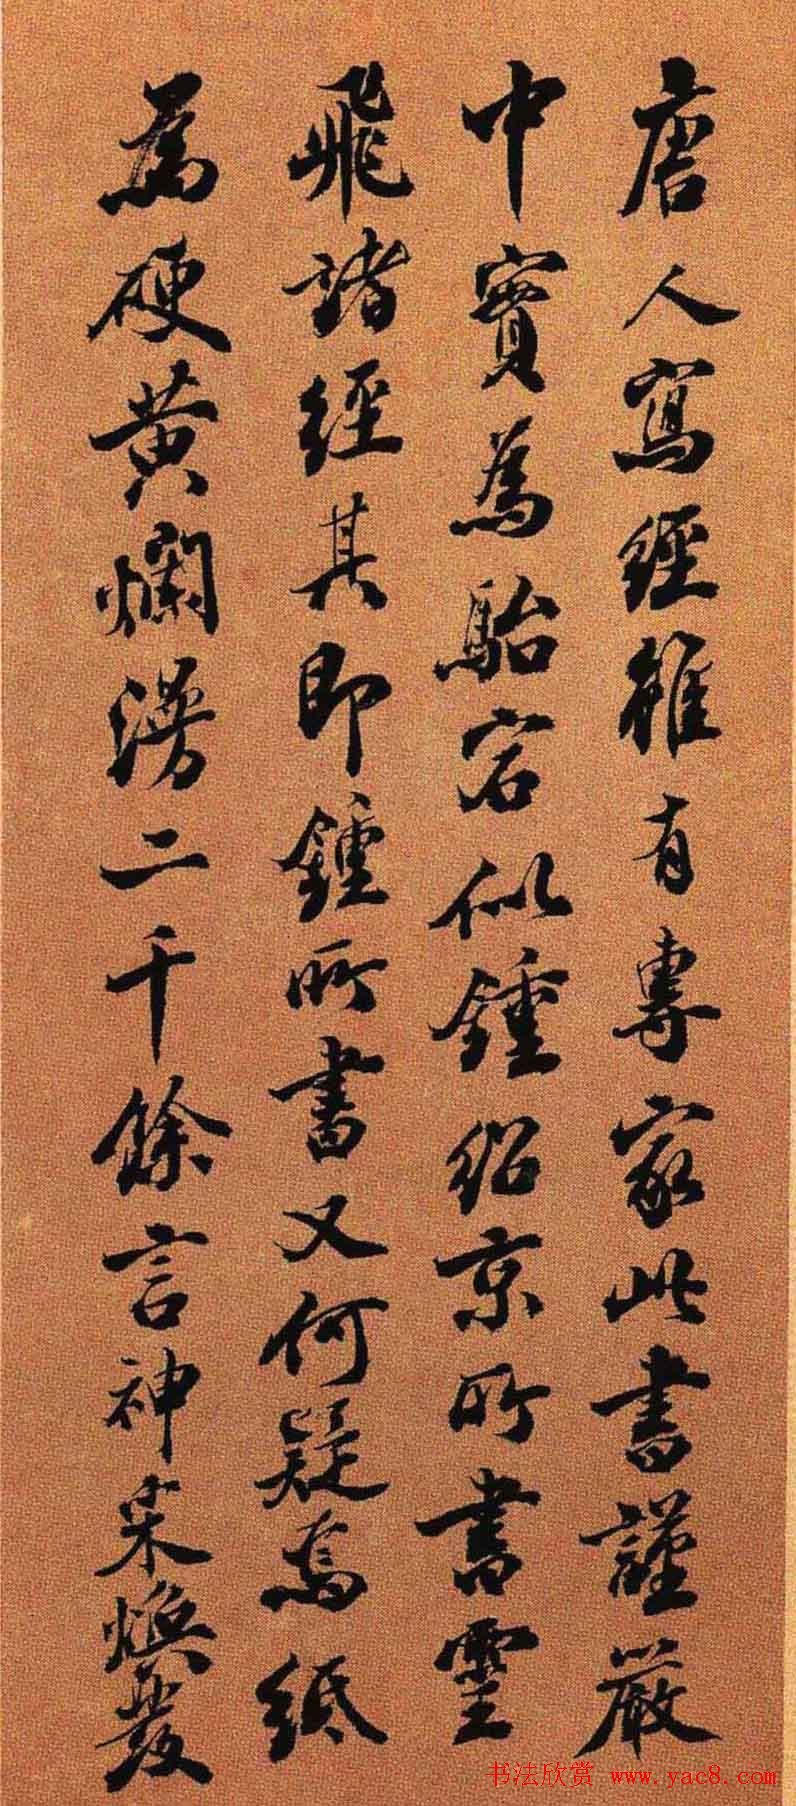 唐人寫經雖有專家此書謹嚴
中實為駘宕似鍾紹京所書靈
飛諸經其即鍾所書又何疑焉紙
為硬黃爛漫二千餘言神采煥發
书法欣赏 www.yac8.com